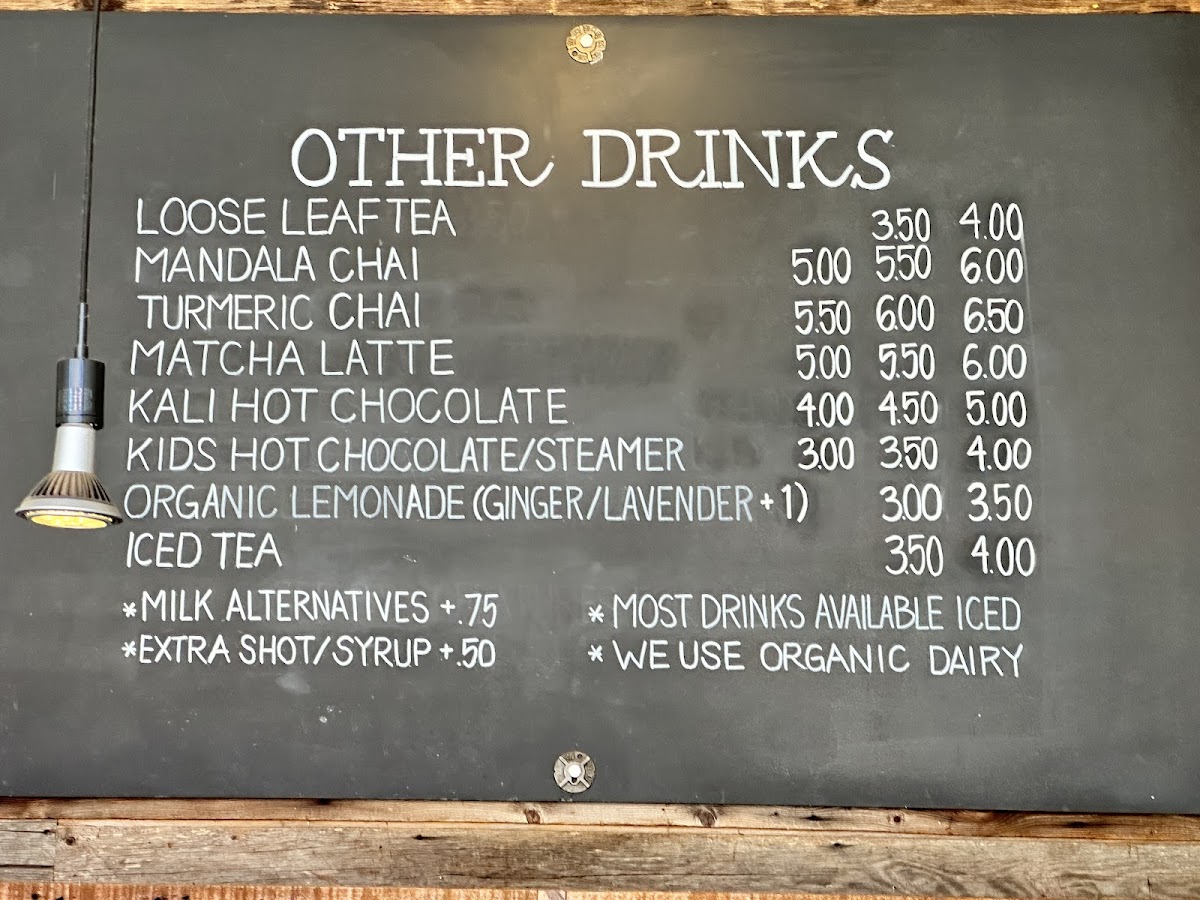 OTHER DRINKS
LOOSE LEAF TEA 3.50 4.00
MANDALA CHAI 5.00 5.50 6.00
TURMERIC CHAI 5.50 6.00 6.50
MATCHA LATTE 5.00 5.50 6.00
KALI HOT CHOCOLATE 4.00 4.50 5.00
KIDS HOT CHOCOLATE/STEAMER 3.00 3.50 4.00
ORGANIC LEMONADE (GINGER/LAVENDER +1) 3.00 3.50
ICED TEA 3.50 4.00
*MILK ALTERNATIVES +.75 * MOST DRINKS AVAILABLE ICED
*EXTRA SHOT/SYRUP +.50 * WE USE ORGANIC DAIRY